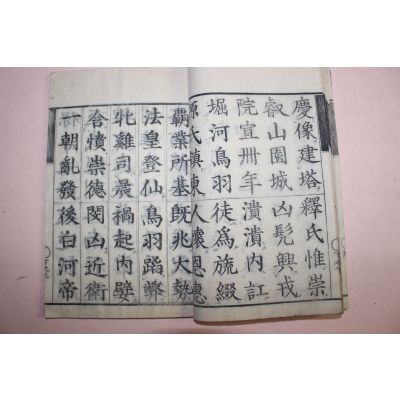 慶像建塔釋氏惟崇
叡山園城凶髡興戎
院宣卅年潰潰內訌
堀河鳥羽徒爲旒綴
源氏鎮東人懷恩惠
霸業所基旣兆大勢
法皇登仙鳥羽蹈弊
牝雞司晨禍起內嬖
含憤崇德閔凶近衛
一朝亂發後白河帝